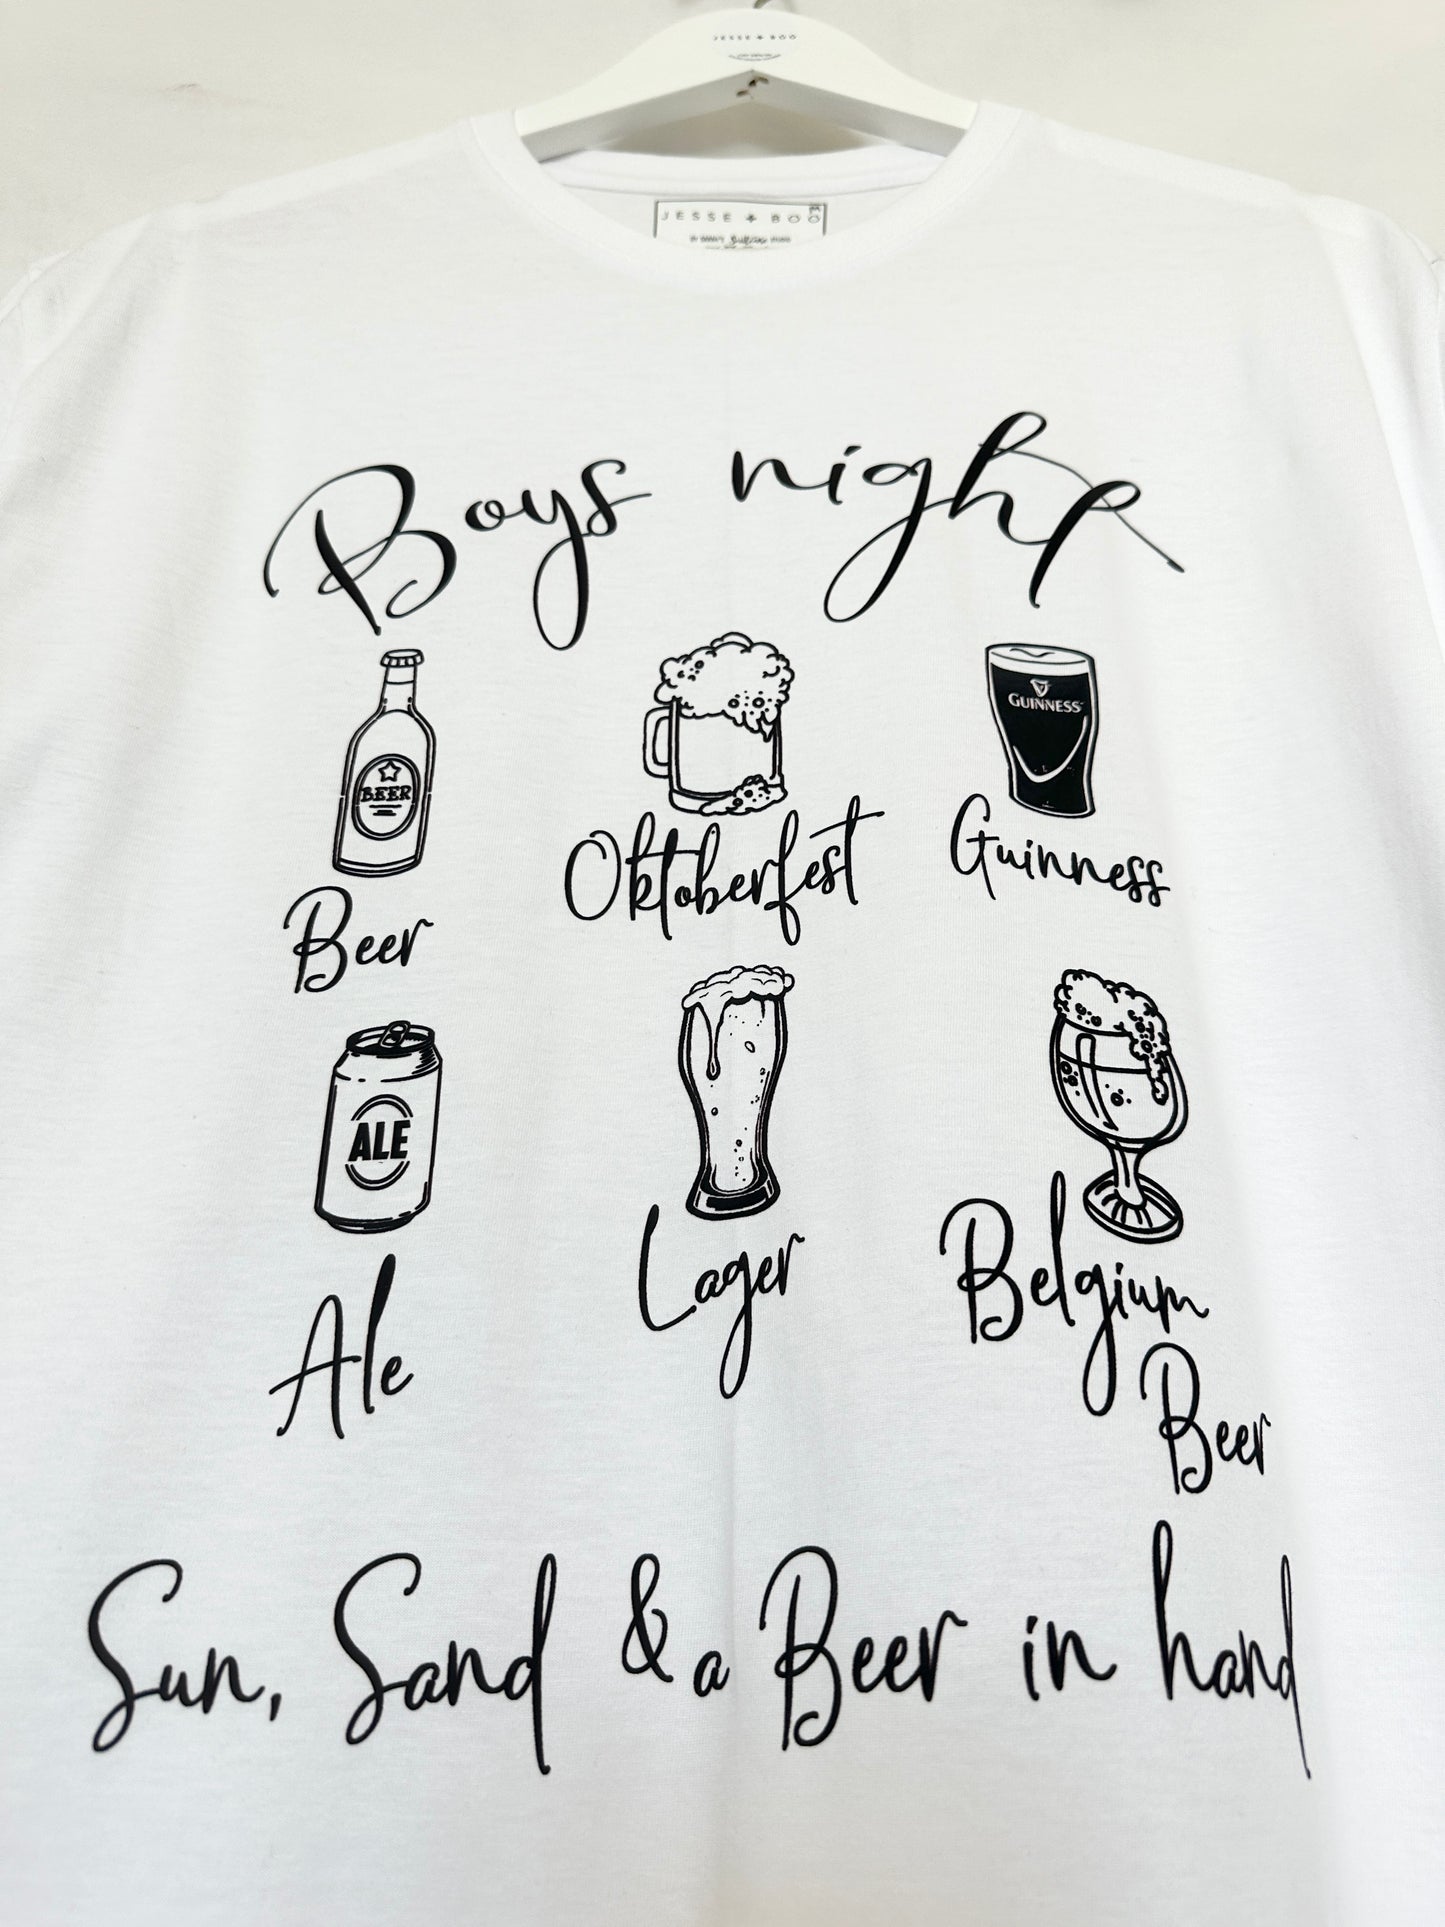 JESSE ★ BOO
JESSE ★ BOO
Boys night
BEER
GUINNESS
Beer
Oktoberfest
Guinness
ALE
Ale
Lager
Belgium
Beer
Sun, Sand & a Beer in hand